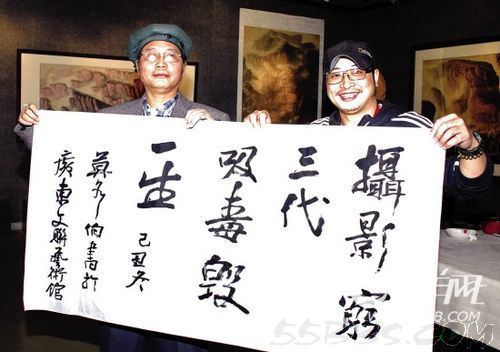 攝影窮
三代
吸毒毀
一生
己丑冬
莫各伯書於
广東文联藝術馆
55BBS.com